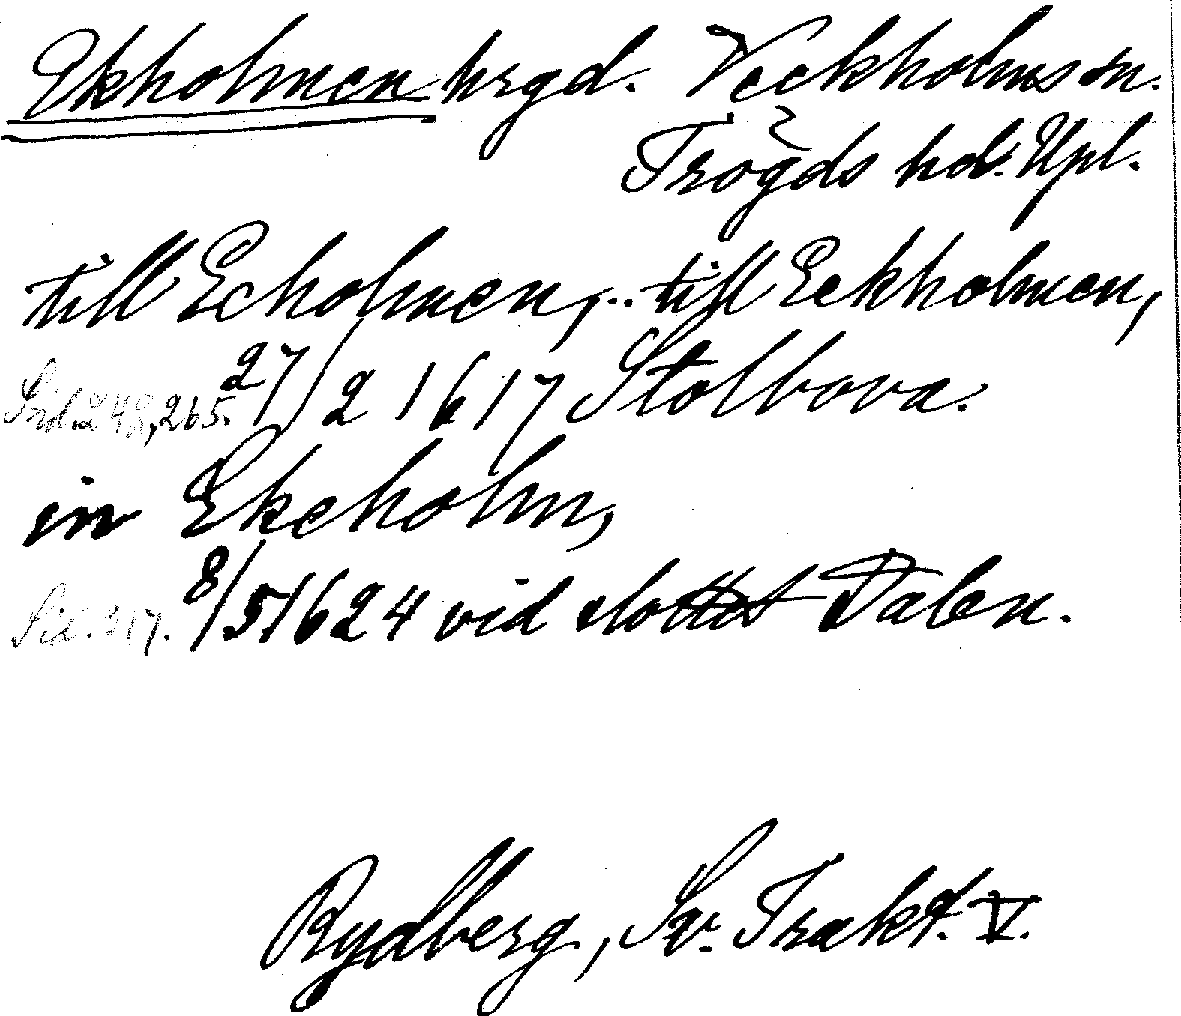 Ekholmen hrgd. Veckholms sn.
Trögds hd. Upl.
till Echolmen, .. till Eckholmen,
Sid. 248, 265. 27/2 1617 Stolbova.
in Ekeholm,
Sid. 317. 8/5 1624 vid slottet Dalen.
Rydberg, Sv. Trakt. V.